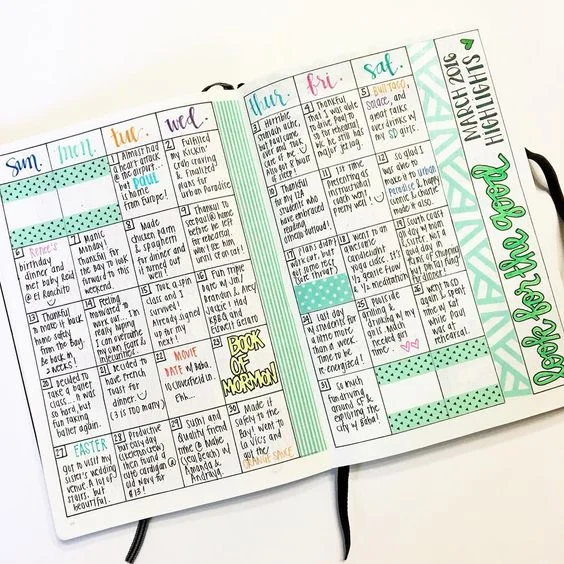 sun. mon. tue. wed. thur. fri. sat.
MARCH 2016
HIGHLIGHTS
look for the good
1 Almost had
a heart attack
@ the airport..
but PAUL
is home
from Europe!
2 Fulfilled
my
Kickin'
Crab craving &
& Finalized
plans for
Urban Paradise
3 Horrible
stomach ache,
but Paul came
over and took
care of me
4 Thankful
that I was able
to drive Paul to
SD for rehearsal
bc he still has
major jetlag.
5 BULL TACO,
SOLACE, and
great talks
over drinks w/
my SD girls.
6 Renee's
birthday
dinner and
met baby
@ El Ranchito
7 Manic
Monday!
Thankful for
the Bay to look
forward to this
weekend.
8 Made
chicken parm
& spaghetti
for dinner
and it turned
out!
9 Thankful to
see Paul @ home
before he left
for rehearsal
won't see him
until
10 Thankful
for my
students
who have
embraced
reading
11 First time
presenting as
instructional
coach went
pretty well!
12 So glad
I was able to
make it to Urban
Paradise & happy
Connie & Charlie
made it also.
13 Thankful
to make it back
home safely
from the Bay.
Be back in
2 weeks!
14 Feeling
motivated to
work out... I'm
really hoping
I can overcome
my own fears &
insecurities.
15 Took a spin
class and I
survived!
Already
signed up for
my next!
16 Fun triple
date w/
Brandon &
Alex, Jackie &
17 Plans didn't
work out, but
got some
18 Went to an
awesome
candlelight
yoga class. It's
1/2 gentle flow
1/2 meditation.
19 South coast
day w/ mom &
sister. Not a
20 Decided to
take a ballet
class... it was
so hard, but
fun taking
ballet again.
21 Decided to
have French
Toast for
dinner.
(3 is too many)
22 MOVIE
DATE w/ Baba.
10 Cloverfield Ln
Ehh...
23 BOOK
OF
MORMON
24 Last day
w/ students for
a little more
than a week.
Time to be
re-energized!
25 Poolside
grilling &
drinking w/ my
gals. Much
needed girl
time.
26 Went to SD
again & spent
time w/ Kat
while Paul
was at
rehearsal.
27 EASTER
Got to visit my
sister's wedding
venue. A lot of
stairs, but
beautiful.
28 Productive
but easy day
then found a
cute cardigan @
Old Navy for
$13!
29 Sushi and
Quality friend
time @
(Seal Beach) w/
Amanda &
Andraya.
30 Made it
safely to the
Bay! Went to
La Vic's and
got the
ORANGE SAUCE
31 So much
fun driving
around SF &
exploring the
city w/ Baba!